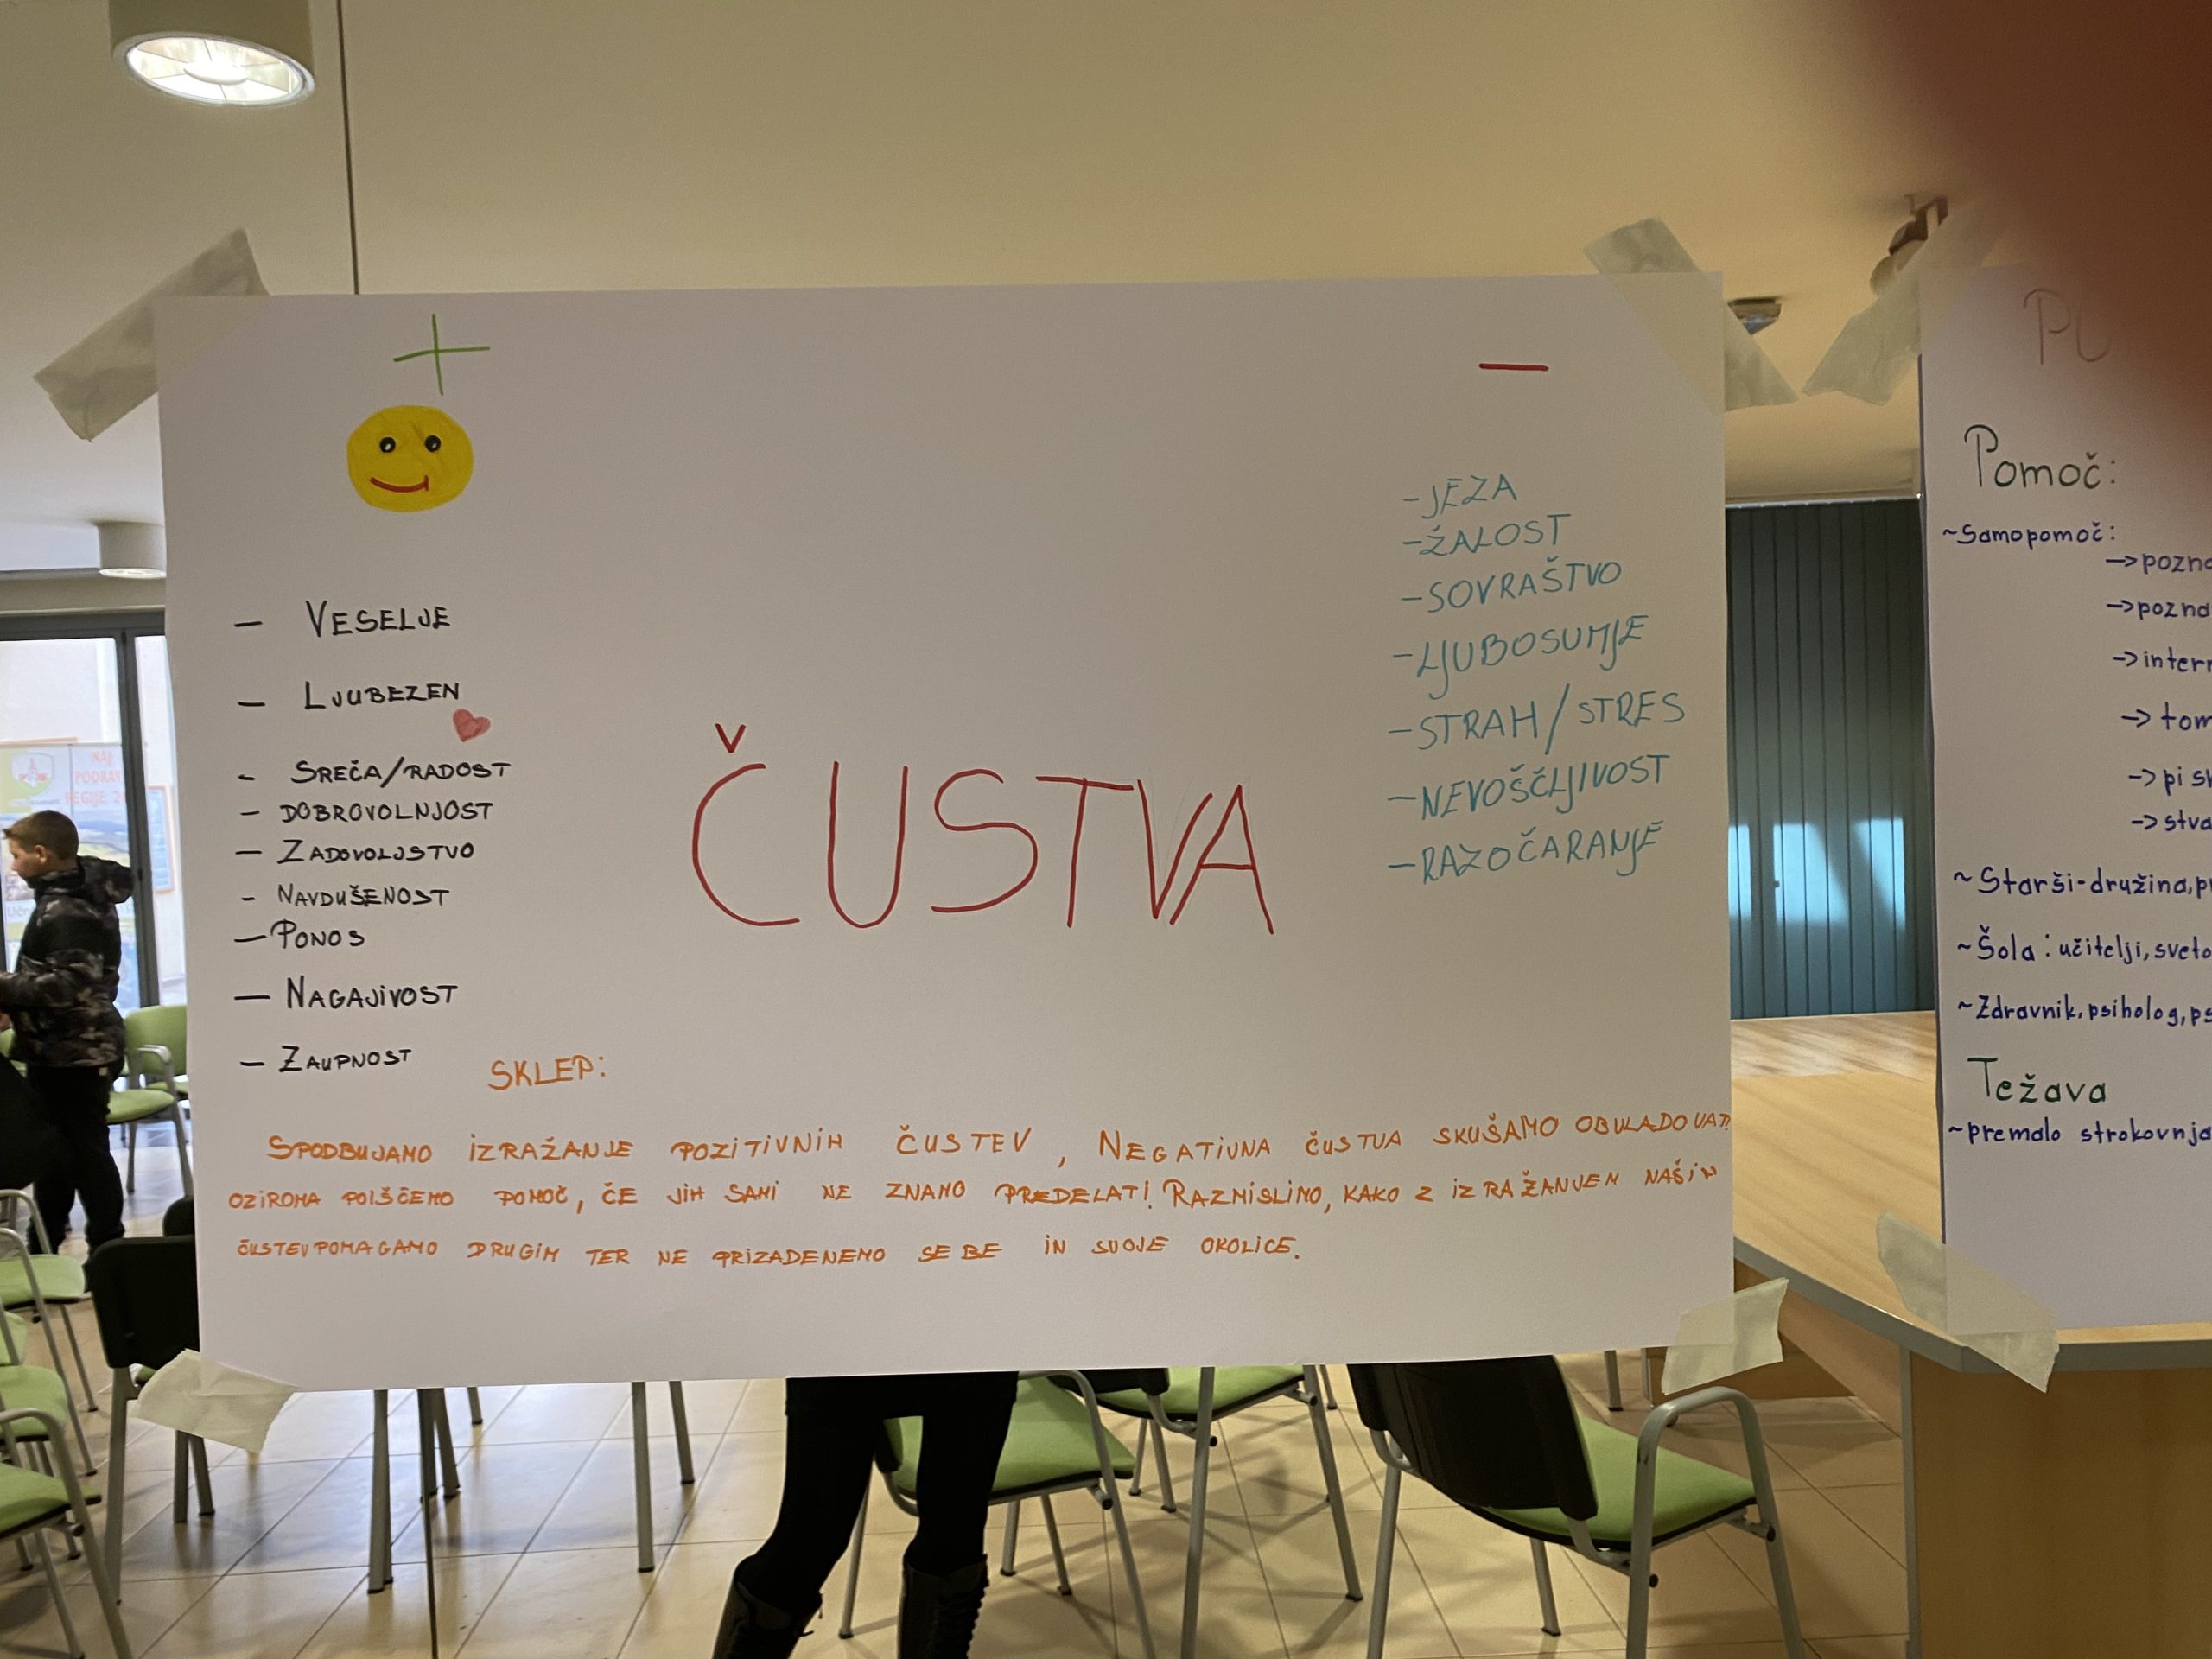 +
—
— VESELJE
— LJUBEZEN
- SREČA/RADOST
- DOBROVOLNJOST
- ZADOVOLJSTVO
- NAVDUŠENOST
— PONOS
— NAGAJIVOST
— ZAUPNOST
ČUSTVA
- JEZA
- ŽALOST
- SOVRAŠTVO
- LJUBOSUMJE
- STRAH/STRES
- NEVOŠČLJIVOST
- RAZOČARANJE
SKLEP:
SPODBUJAMO IZRAŽANJE POZITIVNIH ČUSTEV, NEGATIVNA ČUSTVA SKUŠAMO OBVLADOVATI
OZIROMA POIŠČEMO POMOČ, ČE JIH SAMI NE ZNAMO PREDELATI! RAZMISLIMO, KAKO Z IZRAŽANJEM NAŠIH
ČUSTEV POMAGAMO DRUGIM TER NE PRIZADENEMO SEBE IN SVOJE OKOLICE.
Pomoč:
~Samopomoč:
~Starši-družina,
~Šola: učitelji,
~Zdravnik, psiholog,
Težava
~premalo
NAJ